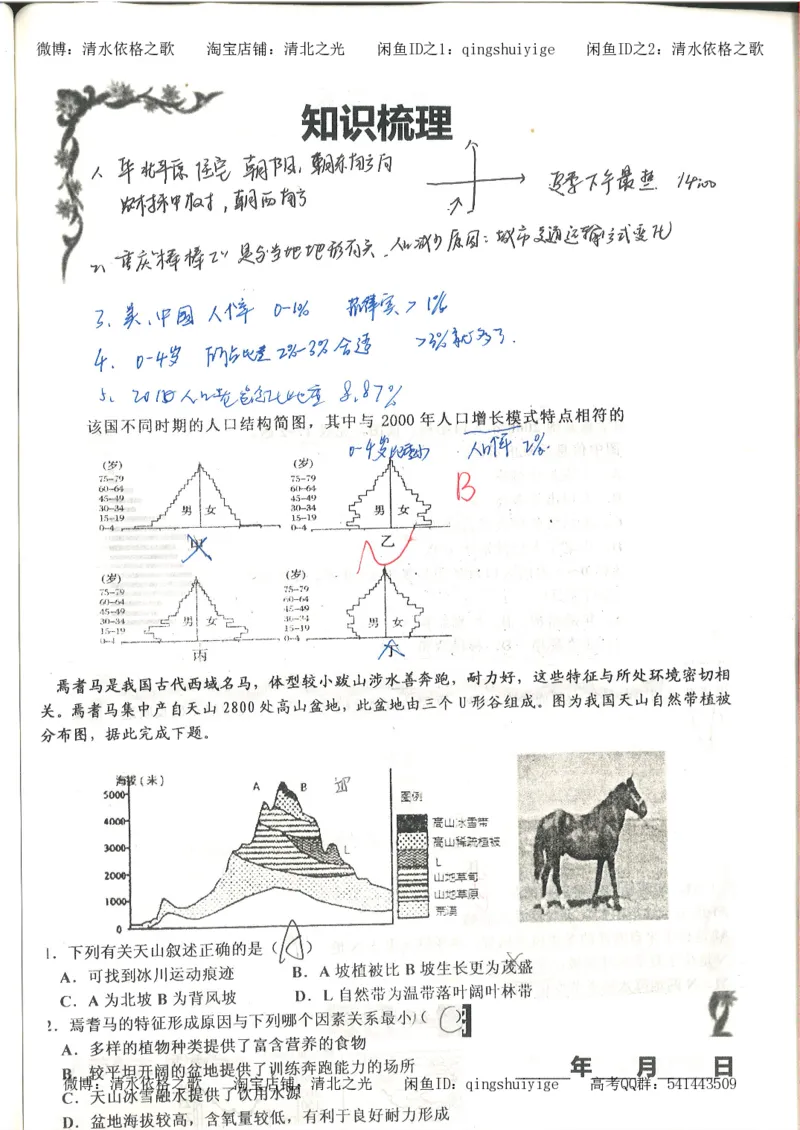 微博：清水依格之歌 淘宝店铺：清北之光 闲鱼ID之1：qingshuiyige 闲鱼ID之2：清水依格之歌
知识梳理
住宅 朝阳，朝东南方向
朝西南方
下午最热 14:00
2、重庆"棒棒工"是与当地地形有关，人口减少原因：城市交通运输方式变化
3、美、中国 0-1% >1%
4、0-4岁 所占比重2%-3%合适 >3%就多了.
5、 8.87%
该国不同时期的人口结构简图，其中与 2000 年人口增长模式特点相符的
0-4岁比重小 2%.
B
(岁) (岁)
75-79 75-79
60-64 60-64
45-49 45-49
30-34 男 女 30-34 男 女
15-19 15-19
0-4 0-4
甲 乙
(岁) (岁)
75-79 75-79
60-64 60-64
45-49 45-49
30-34 男 女 30-34 男 女
15-19 15-19
0-4 0-4
丙
焉耆马是我国古代西域名马，体型较小跋山涉水善奔跑，耐力好，这些特征与所处环境密切相
关。焉耆马集中产自天山 2800 处高山盆地，此盆地由三个 U 形谷组成。图为我国天山自然带植被
分布图，据此完成下题。
海拔（米） A B
5000 图例
4000 高山冰雪带
高山稀疏植被
3000 L L
2000 山地草甸
1000 山地草原
0 荒漠
1．下列有关天山叙述正确的是（A）
A．可找到冰川运动痕迹 B．A 坡植被比 B 坡生长更为茂盛
C．A 为北坡 B 为背风坡 D．L 自然带为温带落叶阔叶林带
2．焉耆马的特征形成原因与下列哪个因素关系最小（C）
A．多样的植物种类提供了富含营养的食物
B．较平坦开阔的盆地提供了训练奔跑能力的场所
年 月 日
微博：清水依格之歌 淘宝店铺：清北之光 闲鱼ID：qingshuiyige 高考QQ群：541443509
C．天山冰雪融水提供了饮用水源
D．盆地海拔较高，含氧量较低，有利于良好耐力形成